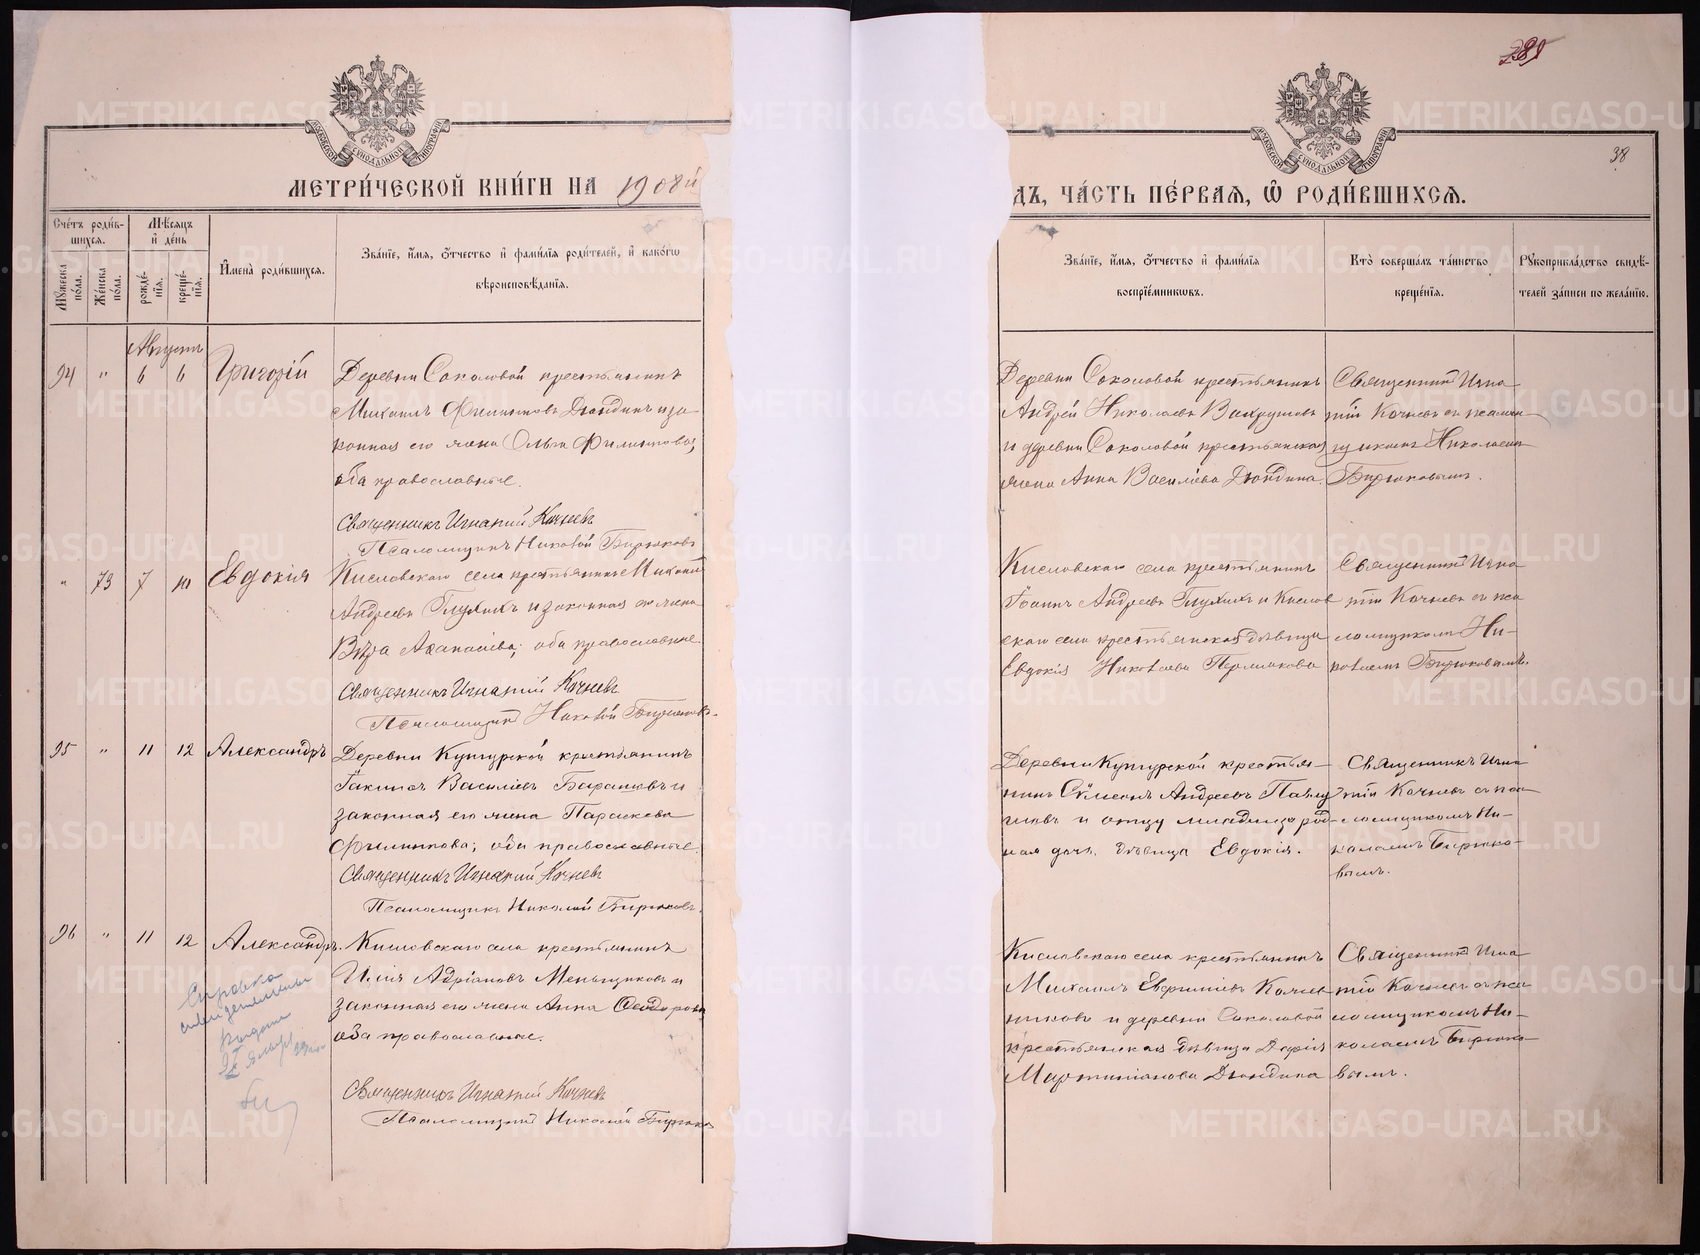 289
38
МОСКОВСКОЙ СѴНОДАЛЬНОЙ ТИПОГРАФІИ
МОСКОВСКОЙ СѴНОДАЛЬНОЙ ТИПОГРАФІИ
МЕТРИ́ЧЕСКОЙ КНИ́ГИ НА 1908й
ДЪ, ЧА́СТЬ ПЕ́РВАЯ, Ѡ РОДИ́ВШИХСѦ.
Сче́тъ роди́вшихсѧ.
Мꙋ́жеска по́ла.
Же́нска по́ла.
Мѣ́сѧцъ и́ де́нь
рожде́нїѧ.
креще́нїѧ.
И҆мена̀ роди́вшихсѧ.
Зва́нїе, и҆́мѧ, ѻ҆́тчество и҆ фами́лїѧ роди́телей, и҆ како́гѡ
вѣроисповѣ́данїѧ.
Зва́нїе, и҆́мѧ, ѻ҆́тчество и҆ фами́лїѧ
воспрїе́мникѡвъ.
Кто̀ соверша́лъ та́инство
креще́нїѧ.
Рꙋкоприкла́дство свидѣ́-
телей за́писи по жела́нїю.
Августъ
94 " 6 6 Григорій
Деревни Соколовой крестьянинъ
Михаилъ Филипповъ Дюндинъ и за-
конная его жена Ольга Филиппова,
оба православные.
Священникъ Игнатий Кочневъ
Псаломщикъ Николай Бирюковъ
Деревни Соколовой крестьянинъ
Андрей Николаевъ Вахрушевъ
и деревни Соколовой крестьянская
жена Анна Васильева Дюндина.
Священникъ Игна-
тій Кочневъ съ псалом-
щикомъ Николаемъ
Бирюковымъ.
" 73 7 10 Евдокія
Кисловскаго села крестьянинъ Николай
Андреевъ Глухихъ и законная его жена
Вѣра Аѳанасіева; оба православные.
Священникъ Игнатий Кочневъ
Псаломщикъ Николай Бирюковъ.
Кисловскаго села крестьянинъ
Іоаннъ Андреевъ Глухихъ и Кислов-
скаго села крестьянская дѣвица
Евдокія Николаева Пермикова
Священникъ Игна-
тій Кочневъ съ пса-
ломщикомъ Ни-
колаемъ Бирюковымъ.
95 " 11 12 Александръ
Деревни Кунгурской крестьянинъ
Іакинѳъ Василіевъ Барановъ и
законная его жена Параскева
Филиппова; оба православные.
Священникъ Игнатий Кочневъ
Псаломщикъ Николай Бирюковъ.
Деревни Кунгурской крестья-
нинъ Сѵмеонъ Андреевъ
и отцу младенца род-
ная дочь дѣвица Евдокія.
Священникъ Игна-
тій Кочневъ съ пса-
ломщикомъ Ни-
колаемъ Бирюко-
вымъ.
96 " 11 12 Александръ.
Кисловскаго села крестьянинъ
Илія Адріановъ Меньщиковъ и
законная его жена Анна Ѳеодорова
оба православные.
Священникъ Игнатий Кочневъ
Псаломщикъ Николай Бирюковъ
Кисловскаго села крестьянинъ
Михаилъ Евфиміевъ
никовъ и деревни Соколовой
крестьянская дѣвица Дарія
Мартиніанова Дюндина
Священникъ Игна-
тій Кочневъ съ пса-
ломщикомъ Ни-
колаемъ Бирюко-
вымъ.
Справка